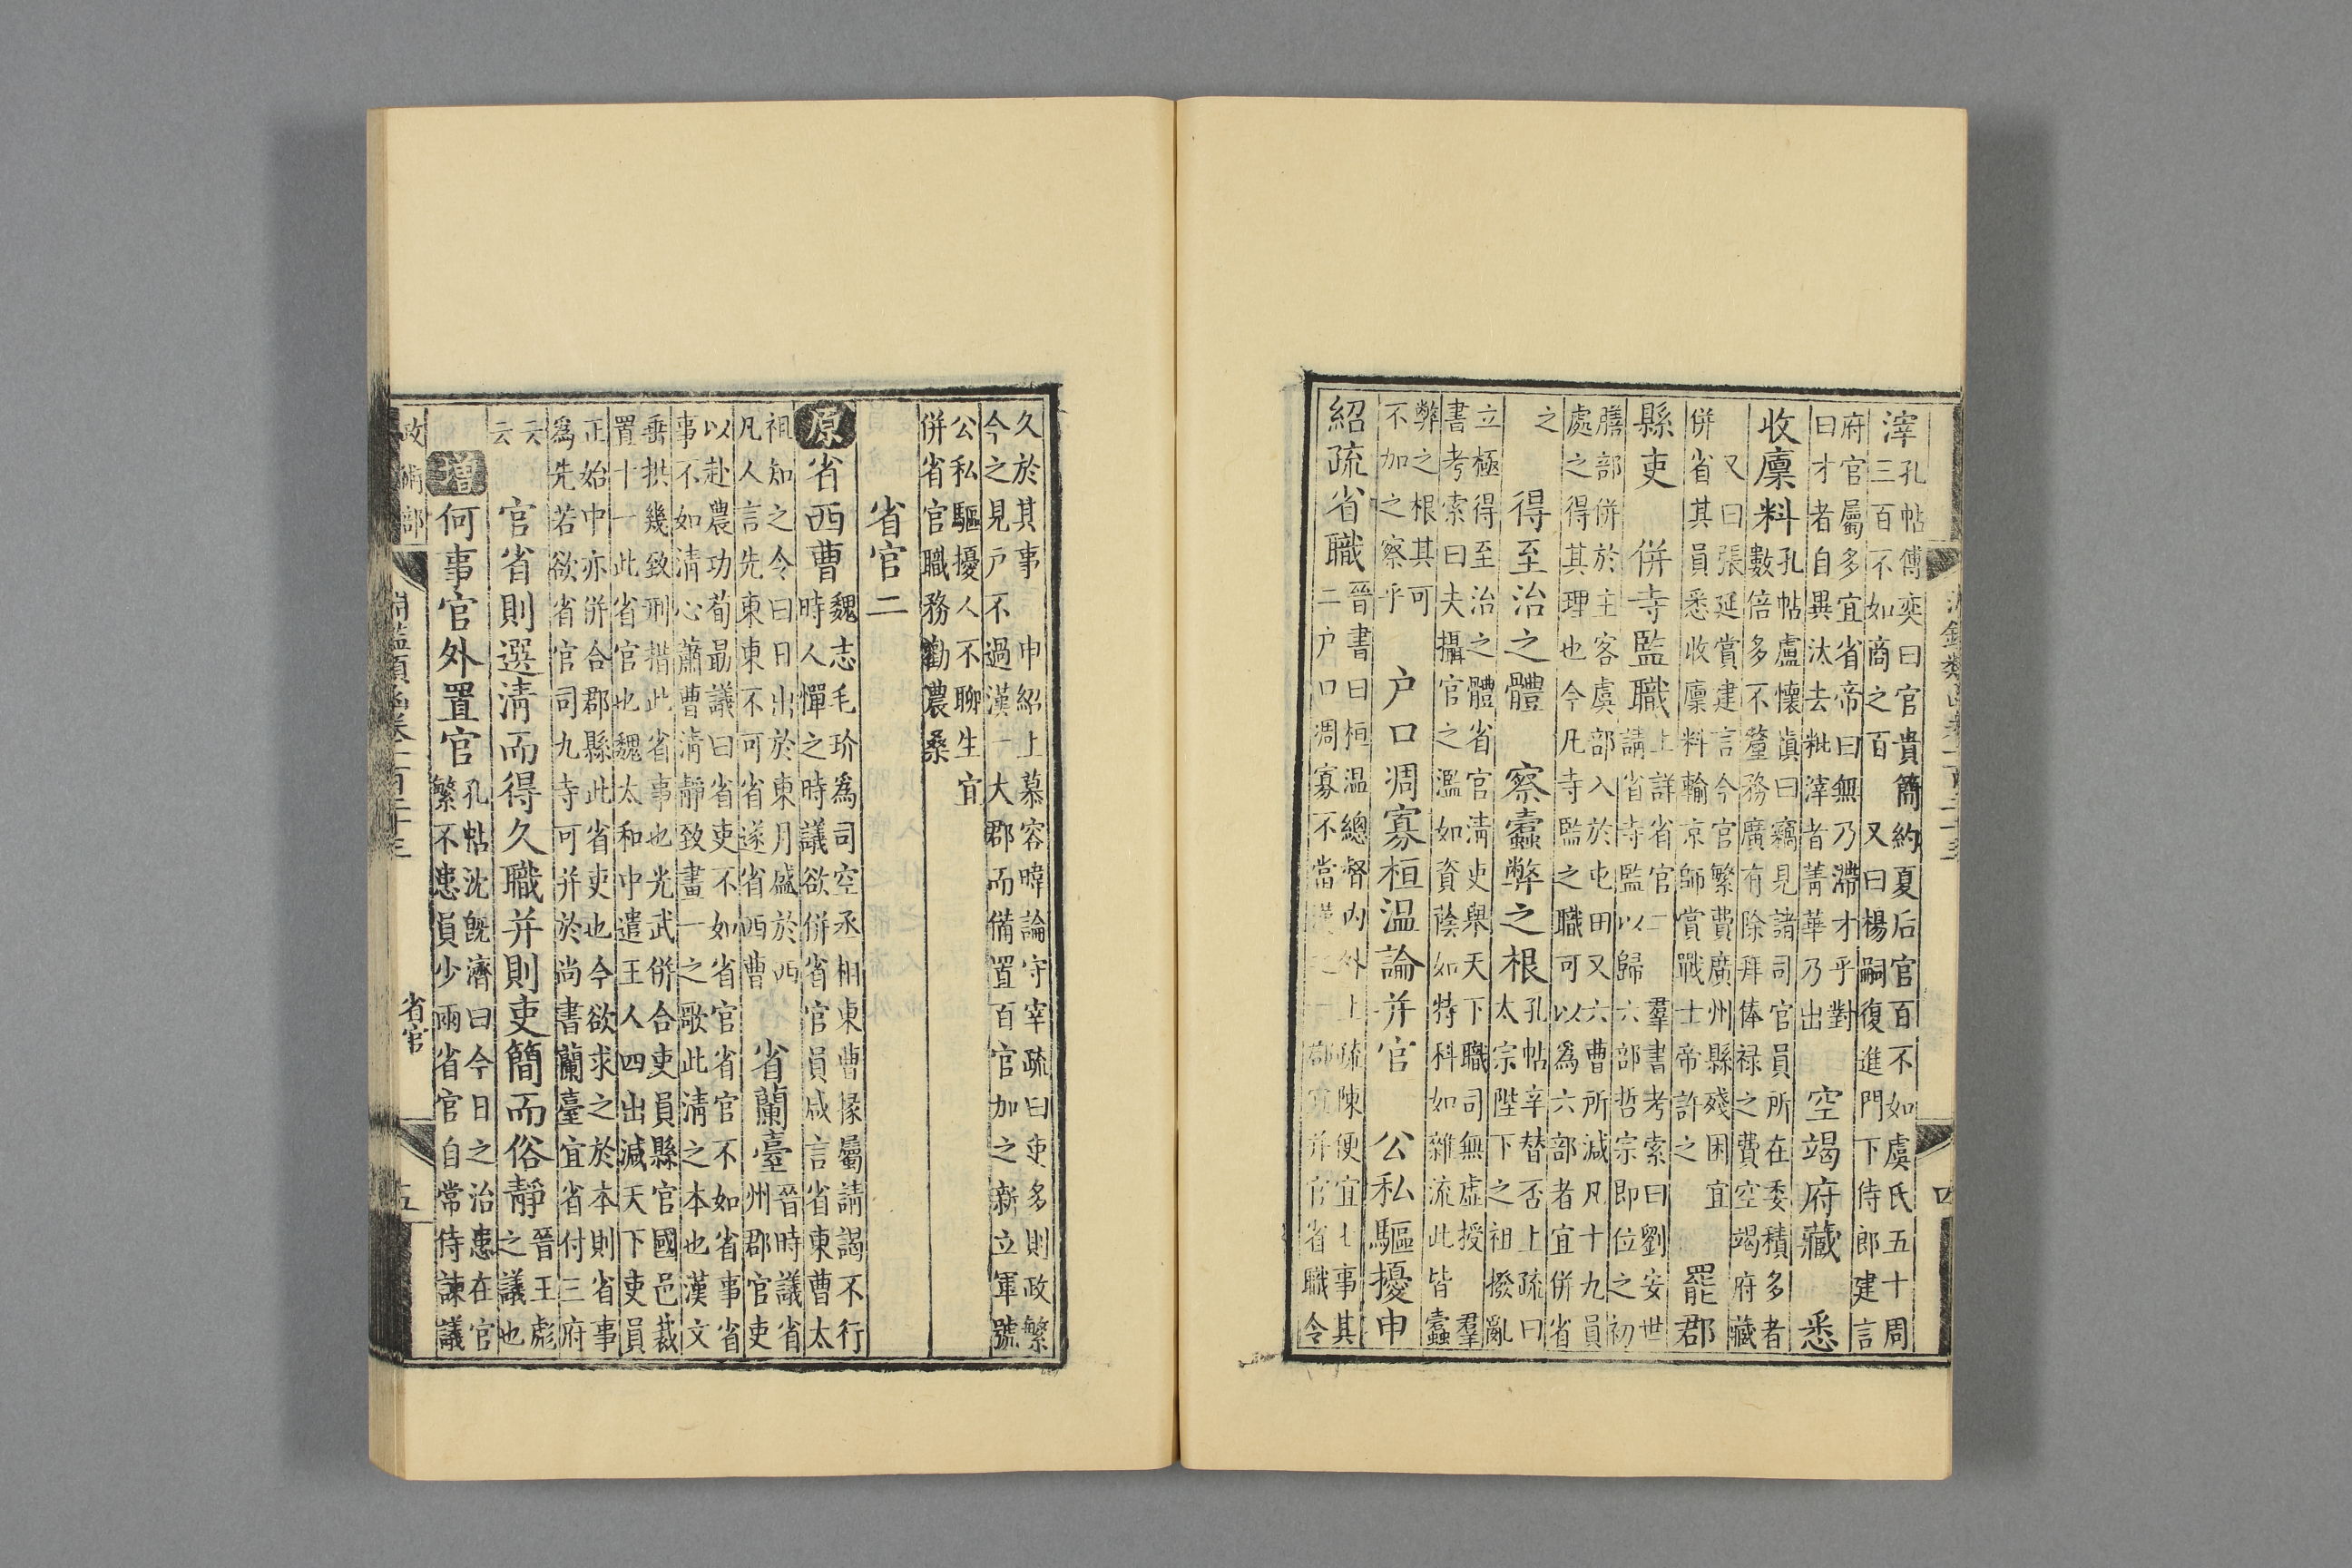 滓孔帖傅奕曰官貴簡約夏后官百不如虞氏五十周
三百不如商之百　又曰楊嗣復進門下侍郎建言
府官屬多宜省帝曰無乃滯才乎對
曰才者自異汰去粃滓者菁華乃出　空竭府藏　悉
收廩料孔帖盧懷慎曰竊見諸司官員所在委積多者
數倍多不釐務廣有除拜俸祿之費空竭府藏
又曰張延賞建言今官繁費廣州縣殘困宜
併省其員悉收廩料輸京師賞戰士帝許之　罷郡
縣吏　併寺監職上詳省官一　羣書考索曰劉安世
請省寺監以歸六部哲宗即位之初
膳部併於主客虞部入於屯田又六曹所減凡十九員
處之得其理也今凡寺監之職可以為六部者宜併省
之　得至治之體　察蠹弊之根孔帖辛替否上疏曰
太宗陛下之祖撥亂
立極得至治之體省官清吏舉天下職司無虛授　羣
書考索曰夫攝官之濫如資蔭如特科如雜流此皆蠹
弊之根其可
不加之察乎　户口凋寡桓溫論并官　公私驅擾申
紹疏省職晉書曰桓溫總督內外上疏陳便宜七事其
二户口凋寡不當漢之一郡宜并官省職令
久於其事　申紹上慕容暐論守宰疏曰吏多則政繁
今之見户不過漢一大郡而備置百官加之新立軍號
公私驅擾人不聊生宜
併省官職務勸農桑
省官二
原省西曹魏志毛玠為司空丞相東曹掾屬請謁不行
時人憚之時議欲併省官員咸言省東曹太
祖知之令曰日出於東月盛於西
凡人言先東東不可省遂省西曹　省蘭臺晉時議省
州郡官吏
以赴農功荀勗議曰省吏不如省官省官不如省事省
事不如清心蕭曹清靜致畫一之歌此清之本也漢文
垂拱幾致刑措此省事也光武併合吏員縣官國邑裁
置十一此省官也魏太和中遣王人四出減天下吏員
正始中亦併合郡縣此省吏也今欲求之於本則省事
為先若欲省官司九寺可并於尚書蘭臺宜省付三府
云云　官省則選清而得久職并則吏簡而俗靜晉王彪
之議也
增何事官外置官孔帖沈旣濟曰今日之治患在官
繁不患員少兩省官自常侍諫議
政術部
淵鑑類函卷一百三十三
省官
五
四